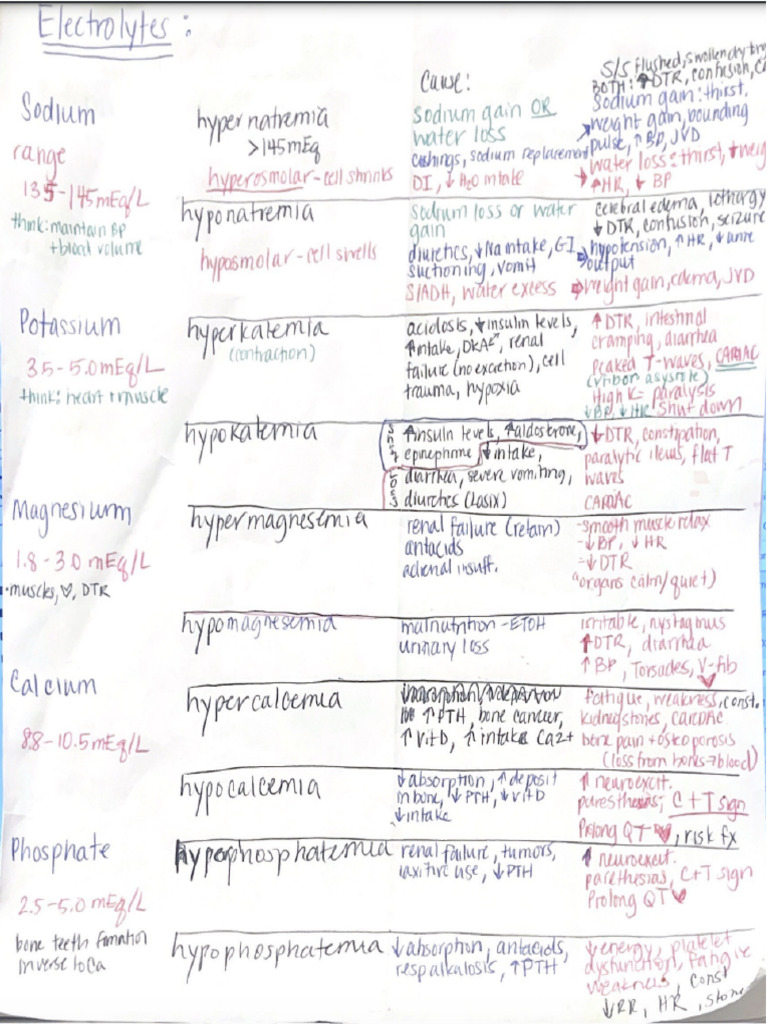 Electrolytes:
Cause:
S/S flushed, swollen dry
BOTH: ↑DTR, confusion,
Sodium
range
135-145mEq/L
think: maintain BP
+ blood volume
hypernatremia
>145mEq
hyperosmolar-cell shrinks
Sodium gain OR
water loss
cushings, sodium replacement
DI, ↓H2O intake
Sodium gain: thirst,
weight gain, bounding
pulse, ↑BP, JVD
water loss: thirst, ↓weig
↑HR, ↓BP
hyponatremia
hyposmolar-cell swells
sodium loss or water
gain
diuretics, ↓Na intake, GI
suctioning, vomit
SIADH, water excess
cerebral edema, lethargy
↓DTR, confusion, seizure
hypotension, ↑HR, ↓urine
output
weight gain, edema, JVD
Potassium
3.5-5.0mEq/L
think: heart + muscle
hyperkalemia
(contraction)
acidosis, ↓insulin levels,
↑intake, DKA, renal
failure (no excretion), cell
trauma, hypoxia
↑DTR, intestinal
cramping, diarrhea
peaked T-waves, CARDIAC
(vfib or asystole)
High K = paralysis
↓BP, ↓HR shut down
hypokalemia
shift
loss
↑insulin levels, ↑aldosterone,
epinephrine ↓intake,
diarrhea, severe vomiting,
diuretics (Lasix)
↓DTR, constipation,
paralytic ileus, flat T
waves
CARDIAC
Magnesium
1.8-3.0 mEq/L
·muscles, ♡, DTR
hypermagnesemia
renal failure (retain)
antacids
adrenal insuff.
-smooth muscle relax
-↓BP, ↓HR
-↓DTR
"organs calm/quiet)
hypomagnesemia
malnutrition-ETOH
urinary loss
irritable, nystagmus
↑DTR, diarrhea
↑BP, Torsades, V-fib
Calcium
8.8-10.5mEq/L
hypercalcemia
↑PTH, bone cancer,
↑VitD, ↑intake Ca2+
fatigue, weakness, const.
kidney stones, CARDIAC
bone pain + osteoporosis
(loss from bones→blood)
hypocalcemia
↓absorption, ↑deposit
in bone, ↓PTH, ↓VitD
↓intake
↑neuroexcit.
paresthesias, C+T sign
Prolong QT ♥, risk fx
Phosphate
2.5-5.0 mEq/L
bone teeth formation
inverse to Ca
hyperphosphatemia
renal failure, tumors,
laxitive use, ↓PTH
↑neuroexcit.
parethesias, C+T sign
Prolong QT♥
hypophosphatemia
↓absorption, antacids,
resp alkalosis, ↑PTH
↓energy, platelet
dysfunction, fatigue
weakness, const
↓RR, HR, stone